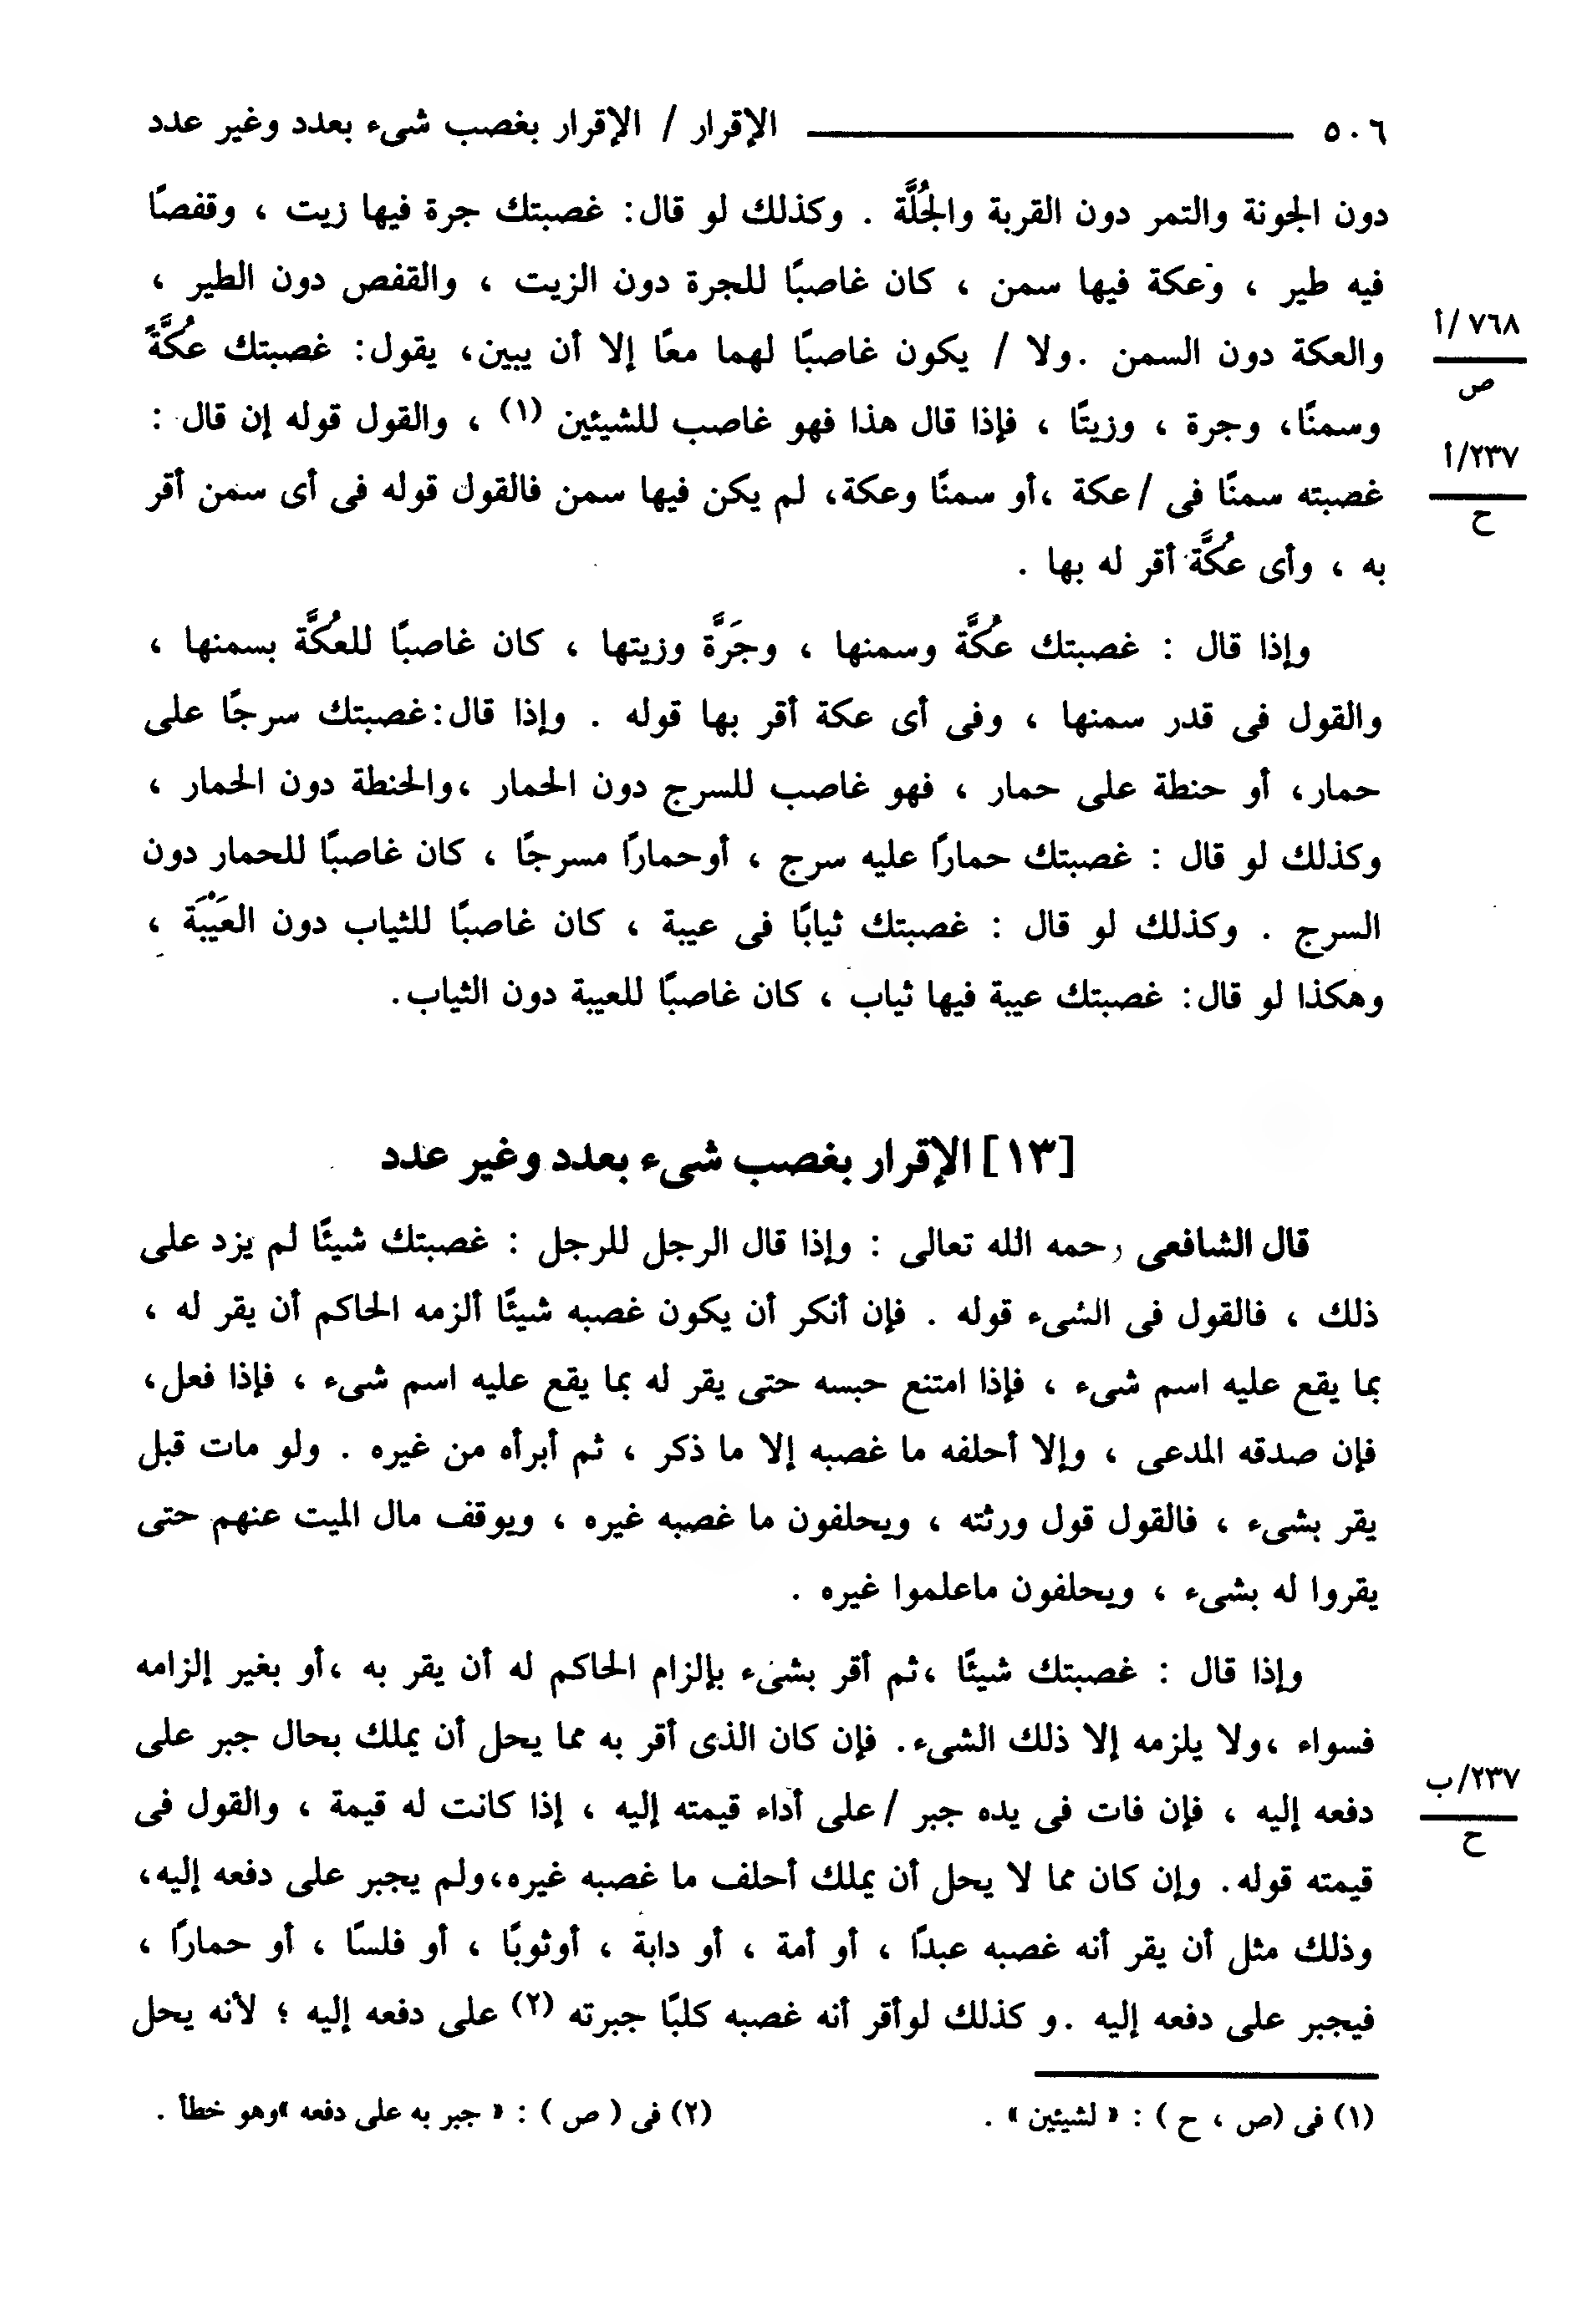 ٥٠٦ ــــــــــــــــ الإقرار / الإقرار بغصب شىء بعدد وغير عدد
دون الجونة والتمر دون القربة والجُلَّة . وكذلك لو قال: غصبتك جرة فيها زيت ، وقفصًا
فيه طير ، وعكة فيها سمن ، كان غاصبًا للجرة دون الزيت ، والقفص دون الطير ،
والعكة دون السمن .ولا / يكون غاصبًا لهما معًا إلا أن يبين، يقول: غصبتك عُكَّةً
٧٦٨/أ
ص
وسمنًا، وجرة ، وزيتًا ، فإذا قال هذا فهو غاصب للشيئين (١) ، والقول قوله إن قال :
غصبته سمنًا فى /عكة ،أو سمنًا وعكة، لم يكن فيها سمن فالقول قوله فى أى سمن أقر
٢٣٧/أ
ح
به ، وأى عُكَّة أقر له بها .
وإذا قال : غصبتك عُكَّة وسمنها ، وجَرَّة وزيتها ، كان غاصبًا للعُكَّة بسمنها ،
والقول فى قدر سمنها ، وفى أى عكة أقر بها قوله . وإذا قال:غصبتك سرجًا على
حمار، أو حنطة على حمار ، فهو غاصب للسرج دون الحمار ،والحنطة دون الحمار ،
وكذلك لو قال : غصبتك حمارًا عليه سرج ، أوحمارًا مسرجًا ، كان غاصبًا للحمار دون
السرج . وكذلك لو قال : غصبتك ثيابًا فى عيبة ، كان غاصبًا للثياب دون العَيْبَة ،
وهكذا لو قال: غصبتك عيبة فيها ثياب ، كان غاصبًا للعيبة دون الثياب.
[١٣] الإقرار بغصب شىء بعدد وغير عدد
قال الشافعى رحمه الله تعالى : وإذا قال الرجل للرجل : غصبتك شيئًا لم يزد على
ذلك ، فالقول فى الشىء قوله . فإن أنكر أن يكون غصبه شيئًا ألزمه الحاكم أن يقر له ،
بما يقع عليه اسم شىء ، فإذا امتنع حبسه حتى يقر له بما يقع عليه اسم شىء ، فإذا فعل،
فإن صدقه المدعى ، وإلا أحلفه ما غصبه إلا ما ذكر ، ثم أبرأه من غيره . ولو مات قبل
يقر بشىء ، فالقول قول ورثته ، ويحلفون ما غصبه غيره ، ويوقف مال الميت عنهم حتى
يقروا له بشىء ، ويحلفون ماعلموا غيره .
وإذا قال : غصبتك شيئًا ،ثم أقر بشىء بإلزام الحاكم له أن يقر به ،أو بغير إلزامه
فسواء ،ولا يلزمه إلا ذلك الشىء. فإن كان الذى أقر به مما يحل أن يملك بحال جبر على
دفعه إليه ، فإن فات فى يده جبر /على أداء قيمته إليه ، إذا كانت له قيمة ، والقول فى
٢٣٧/ب
ح
قيمته قوله. وإن كان مما لا يحل أن يملك أحلف ما غصبه غيره،ولم يجبر على دفعه إليه،
وذلك مثل أن يقر أنه غصبه عبدًا ، أو أمة ، أو دابة ، أوثوبًا ، أو فلسًا ، أو حمارًا ،
فيجبر على دفعه إليه .و كذلك لوأقر أنه غصبه كلبًا جبرته (٢) على دفعه إليه ؛ لأنه يحل
(١) فى (ص ، ح ) : « لشيئين » .
(٢) فى ( ص ) : « جبر به على دفعه »وهو خطأ .